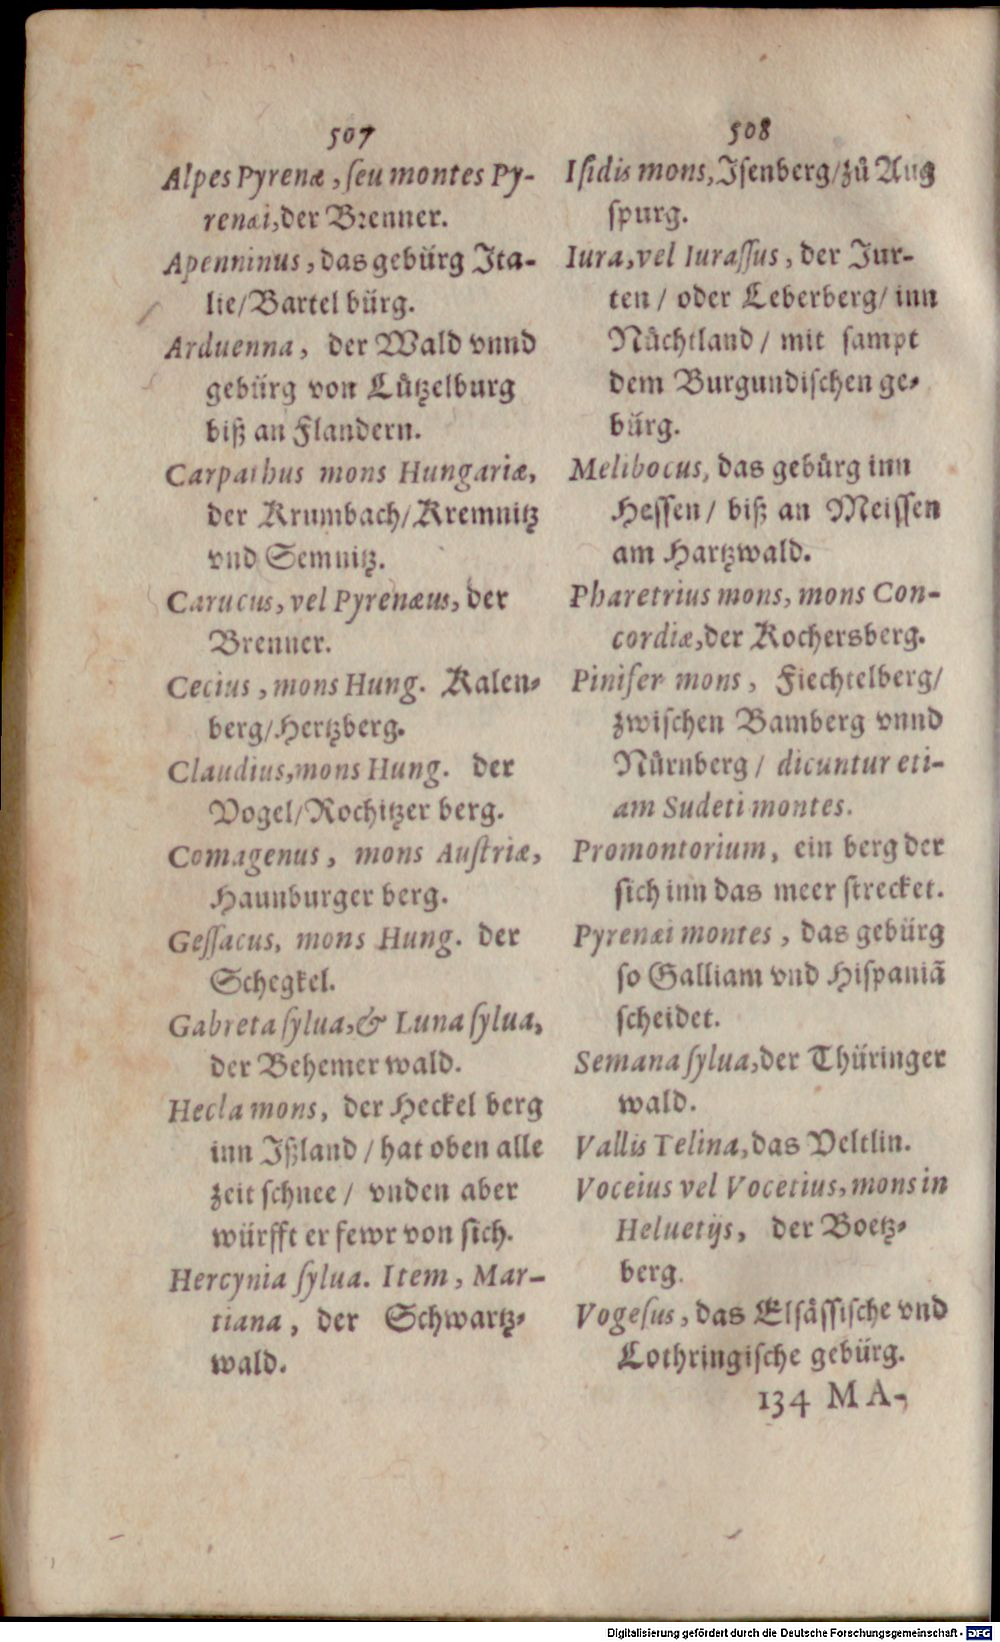 507
Alpes Pyrenæ, ſeu montes Py-
renæi, der Brenner.
Apenninus, das gebürg Ita-
lie/Bartel bürg.
Arduenna, der Wald vnnd
gebürg von Lützelburg
biß an Flandern.
Carpathus mons Hungariæ,
der Krumbach/Kremnitz
vnd Semnitz.
Carucus, vel Pyrenæus, der
Brenner.
Cecius, mons Hung. Kalen-
berg/Hertzberg.
Claudius, mons Hung. der
Vogel/Rochitzer berg.
Comagenus, mons Auſtriæ,
Haunburger berg.
Geſſacus, mons Hung. der
Schegkel.
Gabreta ſylua, & Luna ſylua,
der Behemer wald.
Hecla mons, der Heckel berg
inn Jßland/hat oben alle
zeit ſchnee/ vnden aber
würfft er fewr von ſich.
Hercynia ſylua. Item, Mar-
tiana, der Schwartz-
wald.
508
Iſidis mons, Jſenberg/zů Aug
ſpurg.
Iura, vel Iuraſſus, der Jur-
ten/ oder Leberberg/ inn
Nůchtland/ mit ſampt
dem Burgundiſchen ge-
bürg.
Melibocus, das gebůrg inn
Heſſen/ biß an Meiſſen
am Hartzwald.
Pharetrius mons, mons Con-
cordiæ, der Kochersberg.
Pinifer mons, Fiechtelberg/
zwiſchen Bamberg vnnd
Nůrnberg/ dicuntur eti-
am Sudeti montes.
Promontorium, ein berg der
ſich inn das meer ſtrecket.
Pyrenæi montes, das gebürg
ſo Galliam vnd Hiſpaniã
ſcheidet.
Semana ſylua, der Thüringer
wald.
Vallis Telina, das Veltlin.
Voceius vel Vocetius, mons in
Heluetijs, der Boetz-
berg.
Vogeſus, das Elſåſſiſche vnd
Lothringiſche gebürg.
134 MA-
Digitalisierung gefördert durch die Deutsche Forschungsgemeinschaft - DFG